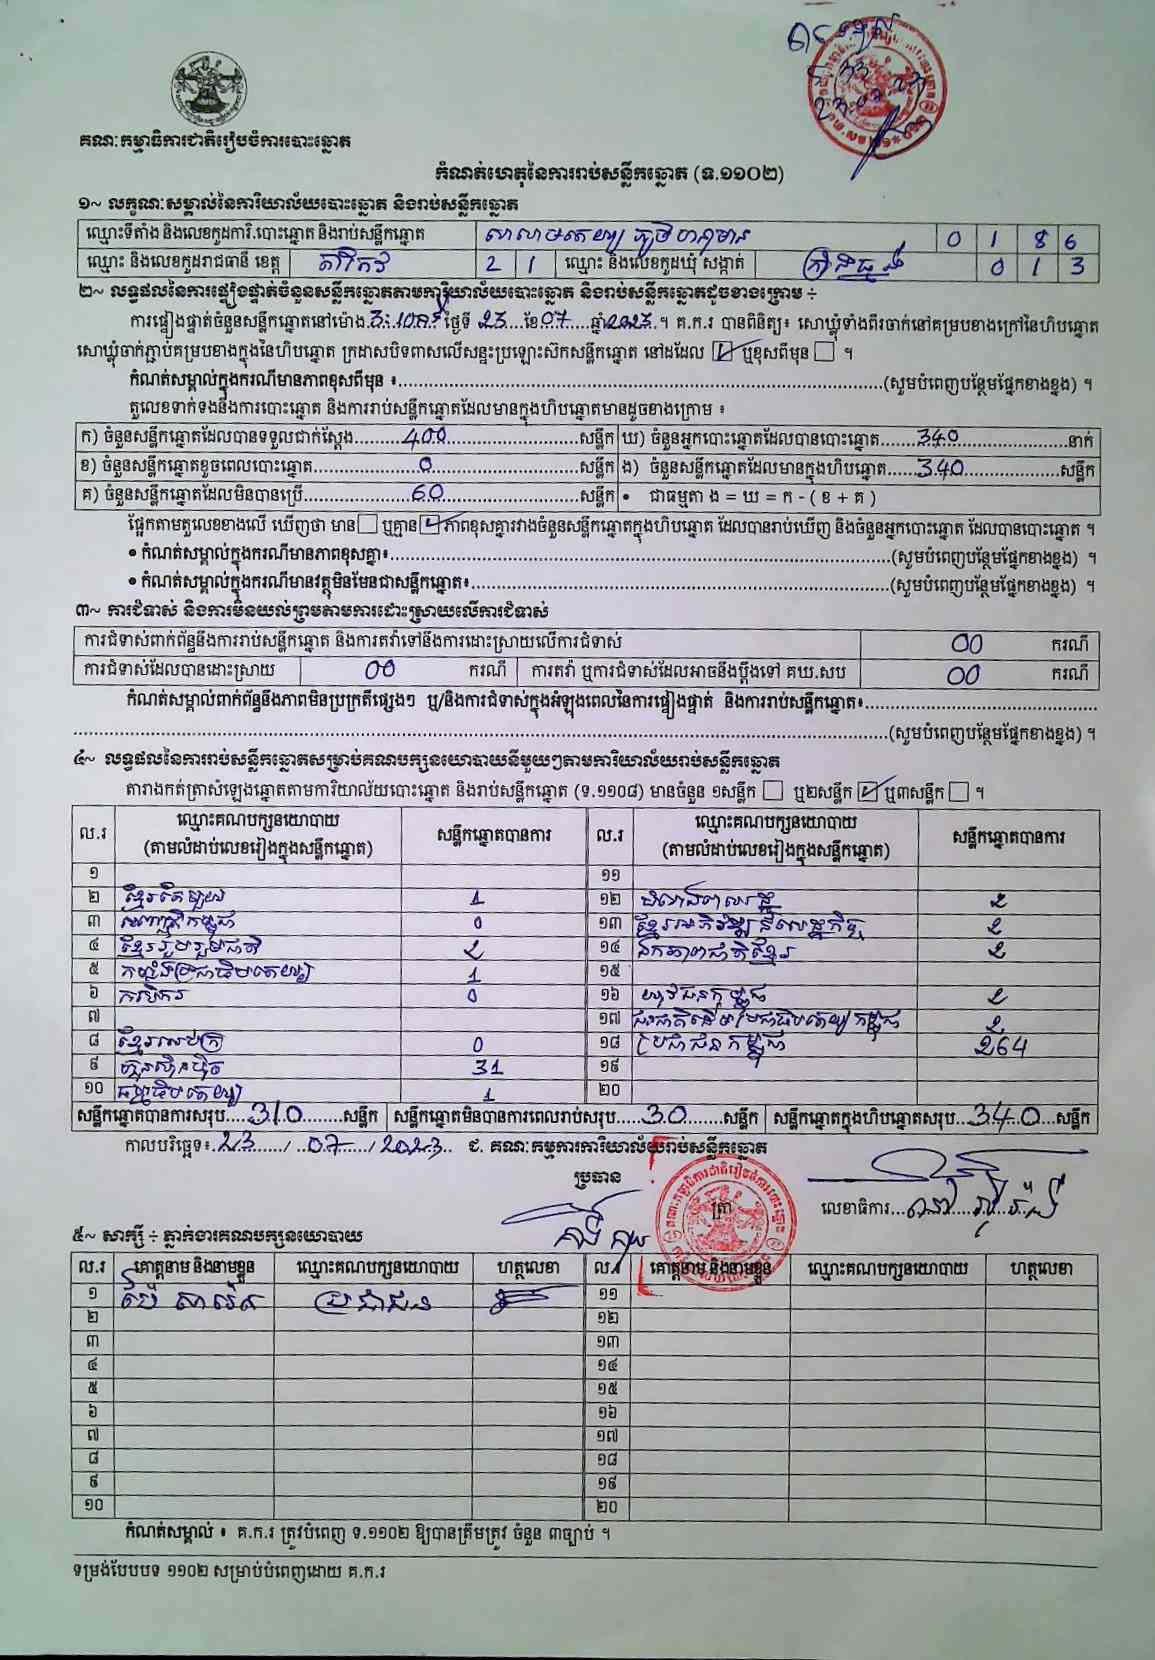 គណៈកម្មាធិការជាតិរៀបចំការបោះឆ្នោត
កំណត់ហេតុនៃការរាប់សន្លឹកឆ្នោត (ទ.១១០២)
១~ លក្ខណៈសម្គាល់នៃការិយាល័យបោះឆ្នោត និងរាប់សន្លឹកឆ្នោត
ឈ្មោះទីតាំង និងលេខកូដការិ.បោះឆ្នោត និងរាប់សន្លឹកឆ្នោត 0 1 8 6
ឈ្មោះ និងលេខកូដរាជធានី ខេត្ត តាកែវ 2 1 ឈ្មោះ និងលេខកូដឃុំ សង្កាត់ 0 1 3
២~ លទ្ធផលនៃការផ្ទៀងផ្ទាត់ចំនួនសន្លឹកឆ្នោតតាមការិយាល័យបោះឆ្នោត និងរាប់សន្លឹកឆ្នោតដូចខាងក្រោម ÷
ការផ្ទៀងផ្ទាត់ចំនួនសន្លឹកឆ្នោតនៅម៉ោង 3:10 ថ្ងៃទី 23 ខែ 07 ឆ្នាំ 2023 ។ គ.ក.រ បានពិនិត្យ៖ សោឃ្លុំទាំងពីរចាក់នៅគម្របខាងក្រៅនៃហិបឆ្នោត
សោឃ្លុំចាក់ភ្ជាប់គម្របខាងក្នុងនៃហិបឆ្នោត ក្រដាសបិទពាសលើសន្ទះប្រឡោះស៊កសន្លឹកឆ្នោត នៅដដែល ☑ ឬខុសពីមុន ☐ ។
កំណត់សម្គាល់ក្នុងករណីមានភាពខុសពីមុន ៖ (សូមបំពេញបន្ថែមផ្នែកខាងខ្នង) ។
តួលេខទាក់ទងនឹងការបោះឆ្នោត និងការរាប់សន្លឹកឆ្នោតដែលមានក្នុងហិបឆ្នោតមានដូចខាងក្រោម ៖
ក) ចំនួនសន្លឹកឆ្នោតដែលបានទទួលជាក់ស្តែង 400 សន្លឹក ឃ) ចំនួនអ្នកបោះឆ្នោតដែលបានបោះឆ្នោត 340 នាក់
ខ) ចំនួនសន្លឹកឆ្នោតខូចពេលបោះឆ្នោត 0 សន្លឹក ង) ចំនួនសន្លឹកឆ្នោតដែលមានក្នុងហិបឆ្នោត 340 សន្លឹក
គ) ចំនួនសន្លឹកឆ្នោតដែលមិនបានប្រើ 60 សន្លឹក • ជាធម្មតា ង = ឃ = ក - ( ខ + គ )
ផ្អែកតាមតួលេខខាងលើ ឃើញថា មាន ☐ ឬគ្មាន ☑ ភាពខុសគ្នារវាងចំនួនសន្លឹកឆ្នោតក្នុងហិបឆ្នោត ដែលបានរាប់ឃើញ និងចំនួនអ្នកបោះឆ្នោត ដែលបានបោះឆ្នោត ។
• កំណត់សម្គាល់ក្នុងករណីមានភាពខុសគ្នា៖ (សូមបំពេញបន្ថែមផ្នែកខាងខ្នង) ។
• កំណត់សម្គាល់ក្នុងករណីមានវត្ថុមិនមែនជាសន្លឹកឆ្នោត៖ (សូមបំពេញបន្ថែមផ្នែកខាងខ្នង) ។
៣~ ការជំទាស់ និងការមិនយល់ព្រមតាមការដោះស្រាយលើការជំទាស់
ការជំទាស់ពាក់ព័ន្ធនឹងការរាប់សន្លឹកឆ្នោត និងការតវ៉ាទៅនឹងការដោះស្រាយលើការជំទាស់ 00 ករណី
ការជំទាស់ដែលបានដោះស្រាយ 00 ករណី ការតវ៉ា ឬការជំទាស់ដែលអាចនឹងប្តឹងទៅ គឃ.សប 00 ករណី
កំណត់សម្គាល់ពាក់ព័ន្ធនឹងភាពមិនប្រក្រតីផ្សេងៗ ឬ/និងការជំទាស់ក្នុងអំឡុងពេលនៃការផ្ទៀងផ្ទាត់ និងការរាប់សន្លឹកឆ្នោត៖
(សូមបំពេញបន្ថែមផ្នែកខាងខ្នង) ។
៤~ លទ្ធផលនៃការរាប់សន្លឹកឆ្នោតសម្រាប់គណបក្សនយោបាយនីមួយៗតាមការិយាល័យរាប់សន្លឹកឆ្នោត
តារាងកត់ត្រាសំឡេងឆ្នោតតាមការិយាល័យបោះឆ្នោត និងរាប់សន្លឹកឆ្នោត (ទ.១១០៨) មានចំនួន ១សន្លឹក ☐ ឬ២សន្លឹក ☑ ឬ៣សន្លឹក ☐ ។
ល.រ ឈ្មោះគណបក្សនយោបាយ (តាមលំដាប់លេខរៀងក្នុងសន្លឹកឆ្នោត) សន្លឹកឆ្នោតបានការ ល.រ ឈ្មោះគណបក្សនយោបាយ (តាមលំដាប់លេខរៀងក្នុងសន្លឹកឆ្នោត) សន្លឹកឆ្នោតបានការ
១ ១១
២ ខ្មែរតែមួយ 1 ១២ 2
៣ 0 ១៣ ខ្មែរអភិវឌ្ឍន៍សេដ្ឋកិច្ច 2
៤ ខ្មែររួបរួមជាតិ 2 ១៤ ឯកភាពជាតិខ្មែរ 2
៥ កម្លាំងប្រជាធិបតេយ្យ 1 ១៥
៦ កសិករ 0 ១៦ យុវជនកម្ពុជា 2
៧ ១៧ ជនជាតិដើមប្រជាធិបតេយ្យកម្ពុជា 2
៨ ខ្មែរអប់ក្រ 0 ១៨ ប្រជាជនកម្ពុជា 264
៩ ហ្វ៊ុនស៊ិនប៉ិច 31 ១៩
១០ ធម្មាធិបតេយ្យ 1 ២០
សន្លឹកឆ្នោតបានការសរុប 310 សន្លឹក សន្លឹកឆ្នោតមិនបានការពេលរាប់សរុប 30 សន្លឹក សន្លឹកឆ្នោតក្នុងហិបឆ្នោតសរុប 340 សន្លឹក
កាលបរិច្ឆេទ៖ 23 / 07 / 2023 ជ. គណៈកម្មការការិយាល័យរាប់សន្លឹកឆ្នោត
ប្រធាន
ត្រា
លេខាធិការ
៥~ សាក្សី ÷ ភ្នាក់ងារគណបក្សនយោបាយ
ល.រ គោត្តនាម និងនាមខ្លួន ឈ្មោះគណបក្សនយោបាយ ហត្ថលេខា ល.រ គោត្តនាម និងនាមខ្លួន ឈ្មោះគណបក្សនយោបាយ ហត្ថលេខា
១ ប្រជាជន ១១
២ ១២
៣ ១៣
៤ ១៤
៥ ១៥
៦ ១៦
៧ ១៧
៨ ១៨
៩ ១៩
១០ ២០
កំណត់សម្គាល់ ៖ គ.ក.រ ត្រូវបំពេញ ទ.១១០២ ឱ្យបានត្រឹមត្រូវ ចំនួន ៣ច្បាប់ ។
ទម្រង់បែបបទ ១១០២ សម្រាប់បំពេញដោយ គ.ក.រ